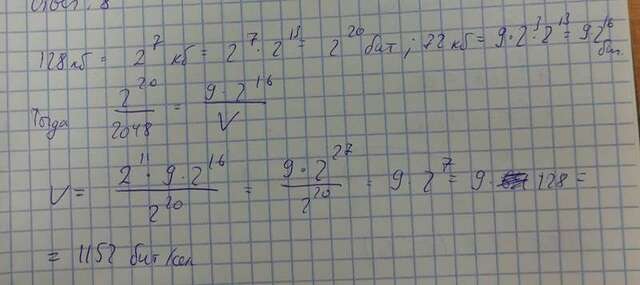 128 кб = 2^7 кб = 2^7 · 2^13 = 2^20 бит ; 72 кб = 9 · 2^3 · 2^13 = 9 2^16 бит
Тогда 2^20/2048 = 9 · 2^16/V
V = 2^11 · 9 · 2^16/2^20 = 9 · 2^27/2^20 = 9 · 2^7 = 9 · 128 =
= 1152 бит/сек